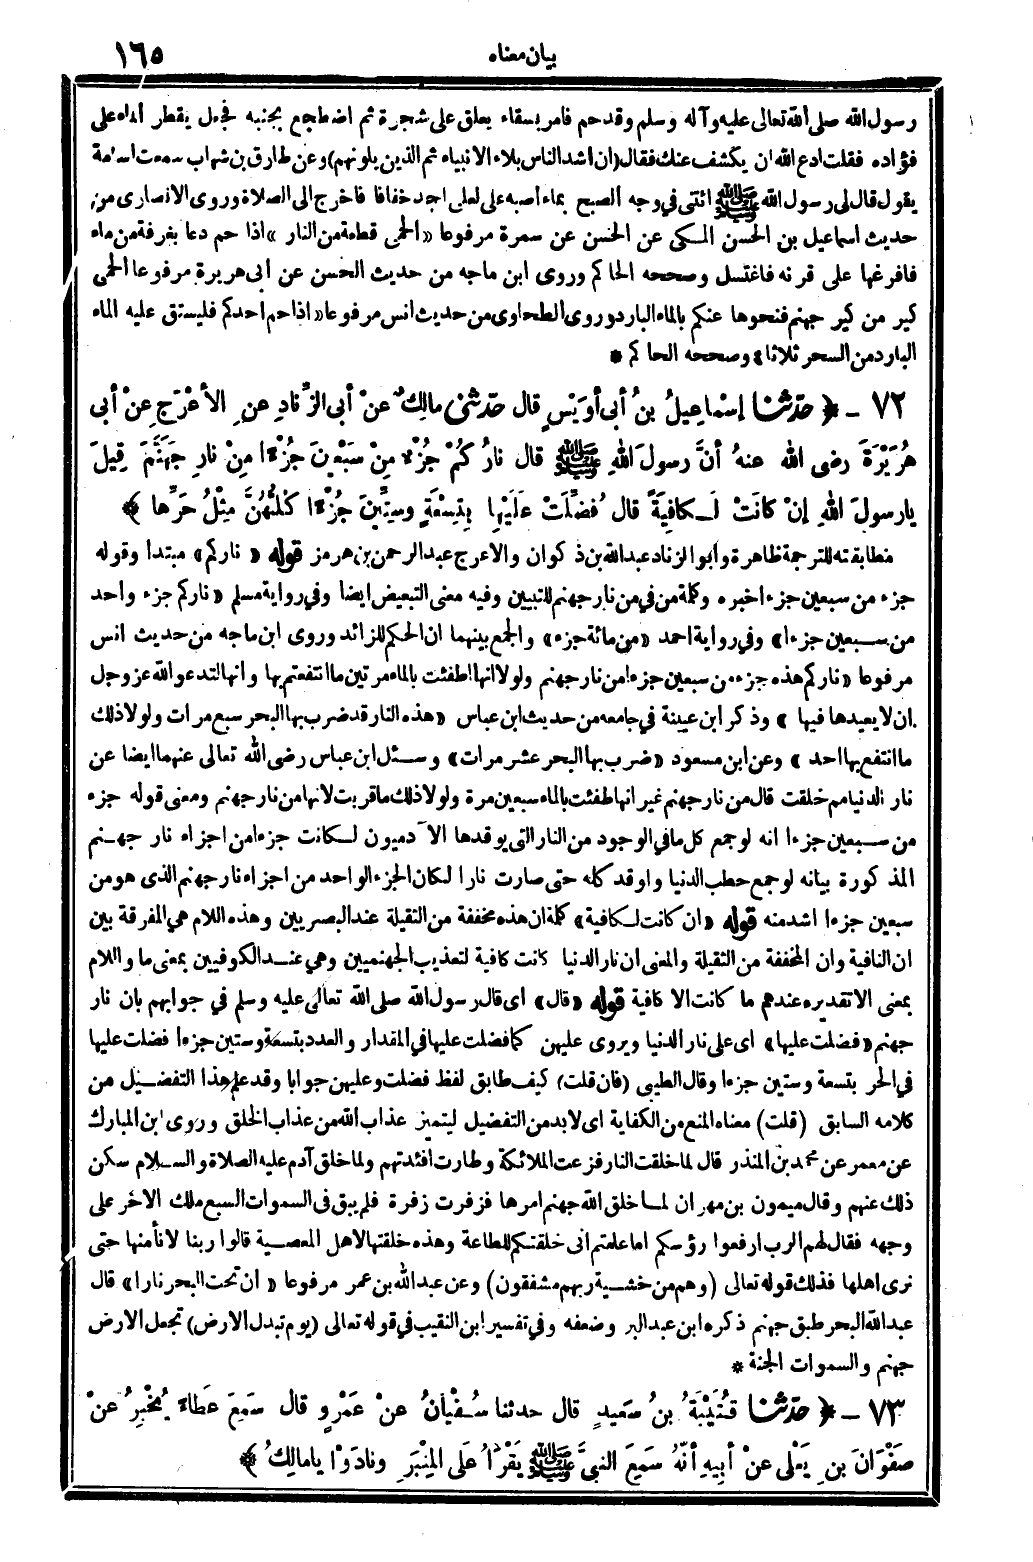 بيان معناه
١٦٥
رسول الله صلى الله تعالى عليه وآله وسلم وقد حم فامر بسقاء يعلق على شجرة ثم اضطجع بجنبه فجعل يقطر الماء على
فؤاده فقلت ادع الله ان يكشف عنك فقال (ان اشد الناس بلاء الانبياء ثم الذين يلونهم) وعن طارق بن شهاب سمعت اسامة
يقول قال لى رسول الله ﷺ ائتنى في وجه الصبح بماء أصبه على لعلى اجد خفافا فاخرج الى الصلاة وروى الانصارى من
حديث اسماعيل بن الحسن المكى عن الحسن عن سمرة مرفوعا «الحمى قطعة من النار» اذا حم دعا بغرفة من ماء
فافرغها على قرنه فاغتسل وصححه الحاكم وروى ابن ماجه من حديث الحسن عن أبى هريرة مرفوعا الحمى
كير من كير جهنم فنحوها عنكم بالماء البارد وروى الطحاوى من حديث انس مرفوعا «اذا حم احدكم فليستق عليه الماء
البارد من السحر ثلاثا» وصححه الحاكم *
٧٢ - ﴿ حدثنا إسْماعِيلُ بنُ أبى أوَيْسٍ قال حدثنى مالِكٌ عنْ أبى الزِّنادِ عنِ الأعْرَجِ عنْ أبى
هُرَيْرَةَ رضى الله عنهُ أنَّ رسولَ اللهِ ﷺ قال نارُكُمْ جُزْءٌ مِنْ سَبْعِينَ جُزْءًا مِنْ نارِ جَهَنَّمَ قِيلَ
يا رسولَ اللهِ إنْ كانَتْ لَكافِيَةً قالَ فُضِّلَتْ عَلَيْها بِتِسْعَةٍ وسِتِّينَ جُزْءًا كُلُّهُنَّ مِثْلُ حَرِّها ﴾
مطابقته للترجمة ظاهرة وابو الزناد عبدالله بن ذكوان والاعرج عبدالرحمن بن هرمز قوله «ناركم» مبتدأ وقوله
جزء من سبعين جزءا خبره وكلمة من في من نار جهنم للتبيين وفيه معنى التبعيض ايضا وفي رواية مسلم «ناركم جزء واحد
من سبعين جزءا» وفي رواية احمد «من مائة جزء» والجمع بينهما ان الحكم للزائد وروى ابن ماجه من حديث انس
مرفوعا «ناركم هذه جزء من سبعين جزءا من نار جهنم ولولا انها اطفئت بالماء مرتين ما انتفعتم بها وانها لتدعو الله عز وجل
ان لا يعيدها فيها» وذكر ابن عيينة في جامعه من حديث ابن عباس «هذه النار قد ضرب بها البحر سبع مرات ولولا ذلك
ما انتفع بها احد» وعن ابن مسعود «ضرب بها البحر عشر مرات» وسئل ابن عباس رضى الله تعالى عنهما ايضا عن
نار الدنيا مم خلقت قال من نار جهنم غير انها طفئت بالماء سبعين مرة ولولا ذلك ما قربت لانها من نار جهنم ومعنى قوله جزء
من سبعين جزءا انه لو جمع كل ما في الوجود من النار التى يوقدها الآدميون لكانت جزءا من اجزاء نار جهنم
المذكورة بيانه لو جمع حطب الدنيا واوقد كله حتى صارت نارا لكان الجزء الواحد من اجزاء نار جهنم الذى هو من
سبعين جزءا اشد منه قوله «ان كانت لكافية» كلمة ان هذه مخففة من الثقيلة عند البصريين وهذه اللام هي المفرقة بين
ان النافية وان المخففة من الثقيلة والمعنى ان نار الدنيا كانت كافية لتعذيب الجهنميين وهي عند الكوفيين بمعنى ما واللام
بمعنى الا تقديره عندهم ما كانت الا كافية قوله «قال» اى قال رسول الله صلى الله تعالى عليه وسلم في جوابهم بان نار
جهنم «فضلت عليها» اى على نار الدنيا ويروى عليهن كما فضلت عليها في المقدار والعدد بتسعة وستين جزءا فضلت عليها
في الحر بتسعة وستين جزءا وقال الطيبى (فان قلت) كيف طابق لفظ فضلت وعليهن جوابا وقد علم هذا التفضيل من
كلامه السابق (قلت) معناه المنع من الكفاية اى لابد من التفضيل ليتميز عذاب الله من عذاب الخلق وروى ابن المبارك
عن معمر عن محمد بن المنذر قال لما خلقت النار فزعت الملائكة وطارت افئدتهم ولما خلق آدم عليه الصلاة والسلام سكن
ذلك عنهم وقال ميمون بن مهران لما خلق الله جهنم امرها فزفرت زفرة فلم يبق فى السموات السبع ملك الا خر على
وجهه فقال لهم الرب ارفعوا رؤسكم اما علمتم انى خلقتكم للطاعة وهذه خلقتها لاهل المعصية قالوا ربنا لا نأمنها حتى
نرى اهلها فذلك قوله تعالى (وهم من خشية ربهم مشفقون) وعن عبدالله بن عمر مرفوعا «ان تحت البحر نارا» قال
عبدالله البحر طبق جهنم ذكره ابن عبدالبر وضعفه وفي تفسير ابن النقيب في قوله تعالى (يوم تبدل الارض) تجعل الارض
جهنم والسموات الجنة *
٧٣ - ﴿ حدثنا قُتَيْبَةُ بنُ سَعِيدٍ قال حدثنا سُفْيانُ عنْ عَمْرٍو قال سَمِعَ عَطاءً يُخْبِرُ عنْ
صَفْوَانَ بنِ يَعْلَى عنْ أبيهِ أنَّهُ سَمِعَ النبيَّ ﷺ يَقْرَأُ عَلَى المِنْبَرِ ونادَوْا يا مالِكُ ﴾